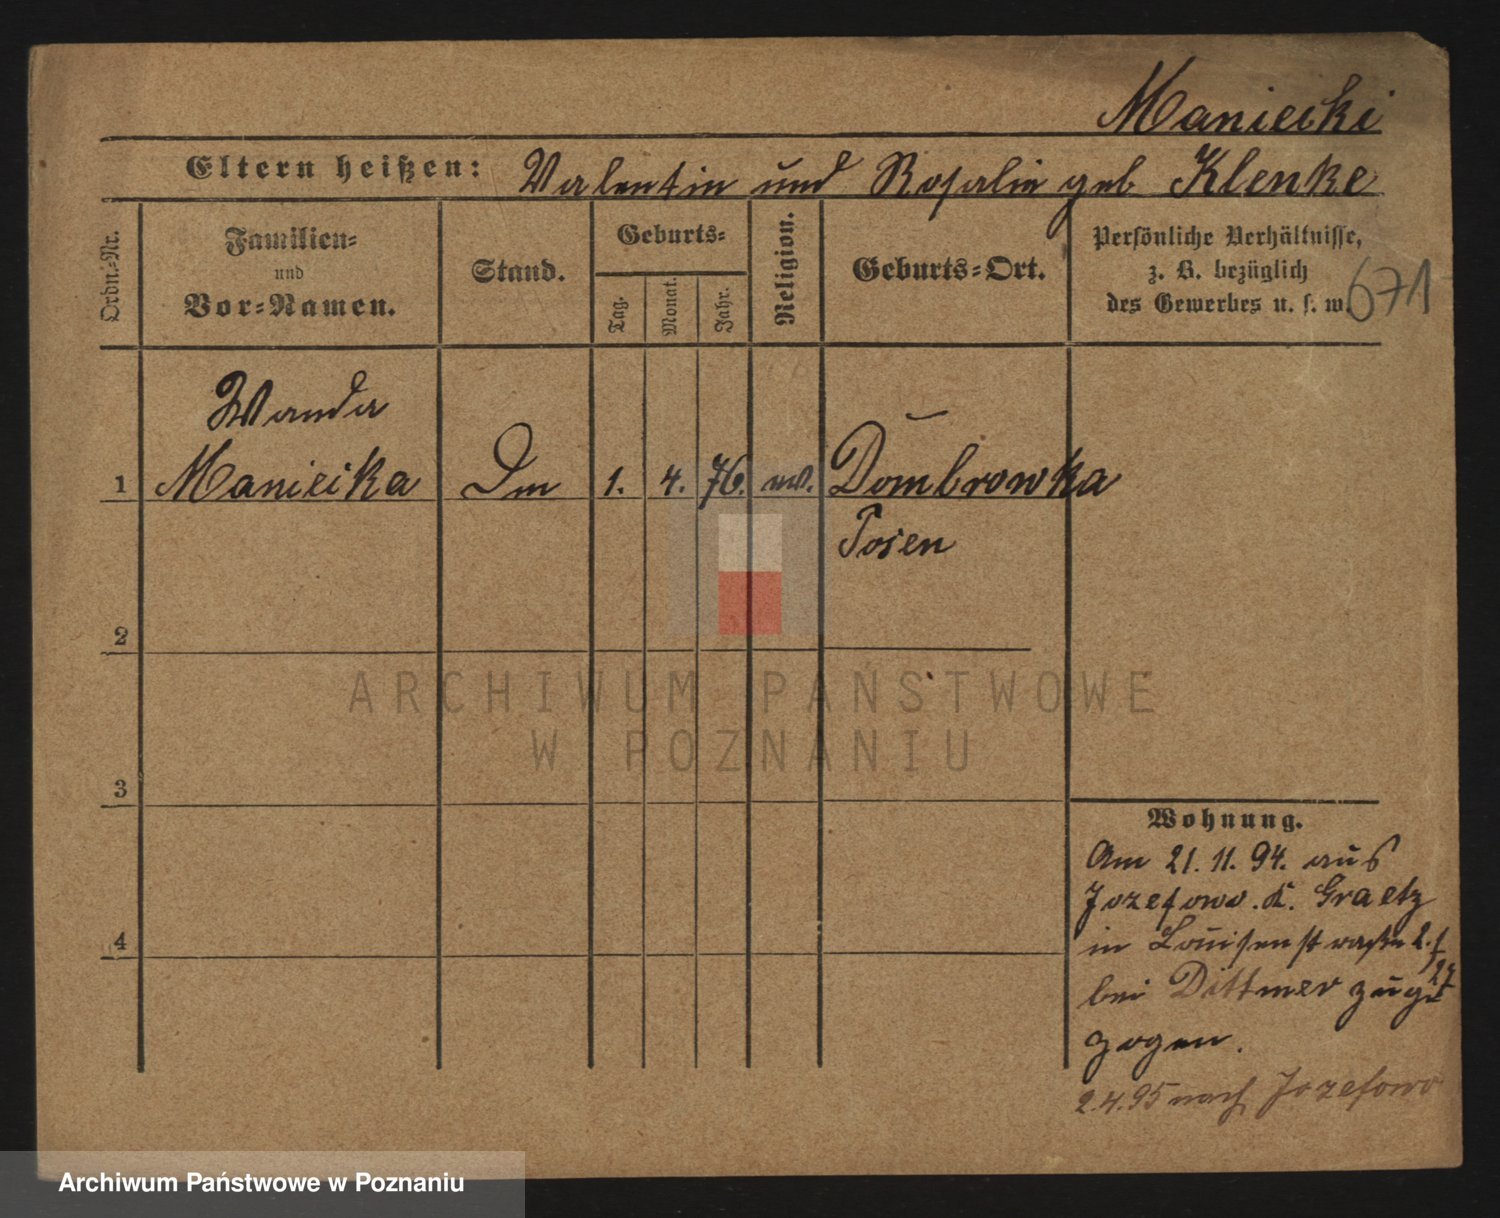 Maniecki
Eltern heißen: Valentin und Rosalie geb Klenke
Ordn.-Nr.
Familien-
und
Vor-Namen.
Stand.
Geburts-
Tag.
Monat.
Jahr.
Religion.
Geburts-Ort.
Persönliche Verhältnisse,
z. B. bezüglich
des Gewerbes u. s. w.
671
Wanda
1 Maniecka 1. 4. 76. Dombrowka
Posen
2
3
4
Wohnung.
Am 21. 11. 94. aus
Jozefowo. K. Graetz
in Louisenstraße 2.
bei Dittmer zuge
zogen.
2.4.95 nach Jozefowo
ARCHIWUM PAŃSTWOWE
W POZNANIU
Archiwum Państwowe w Poznaniu